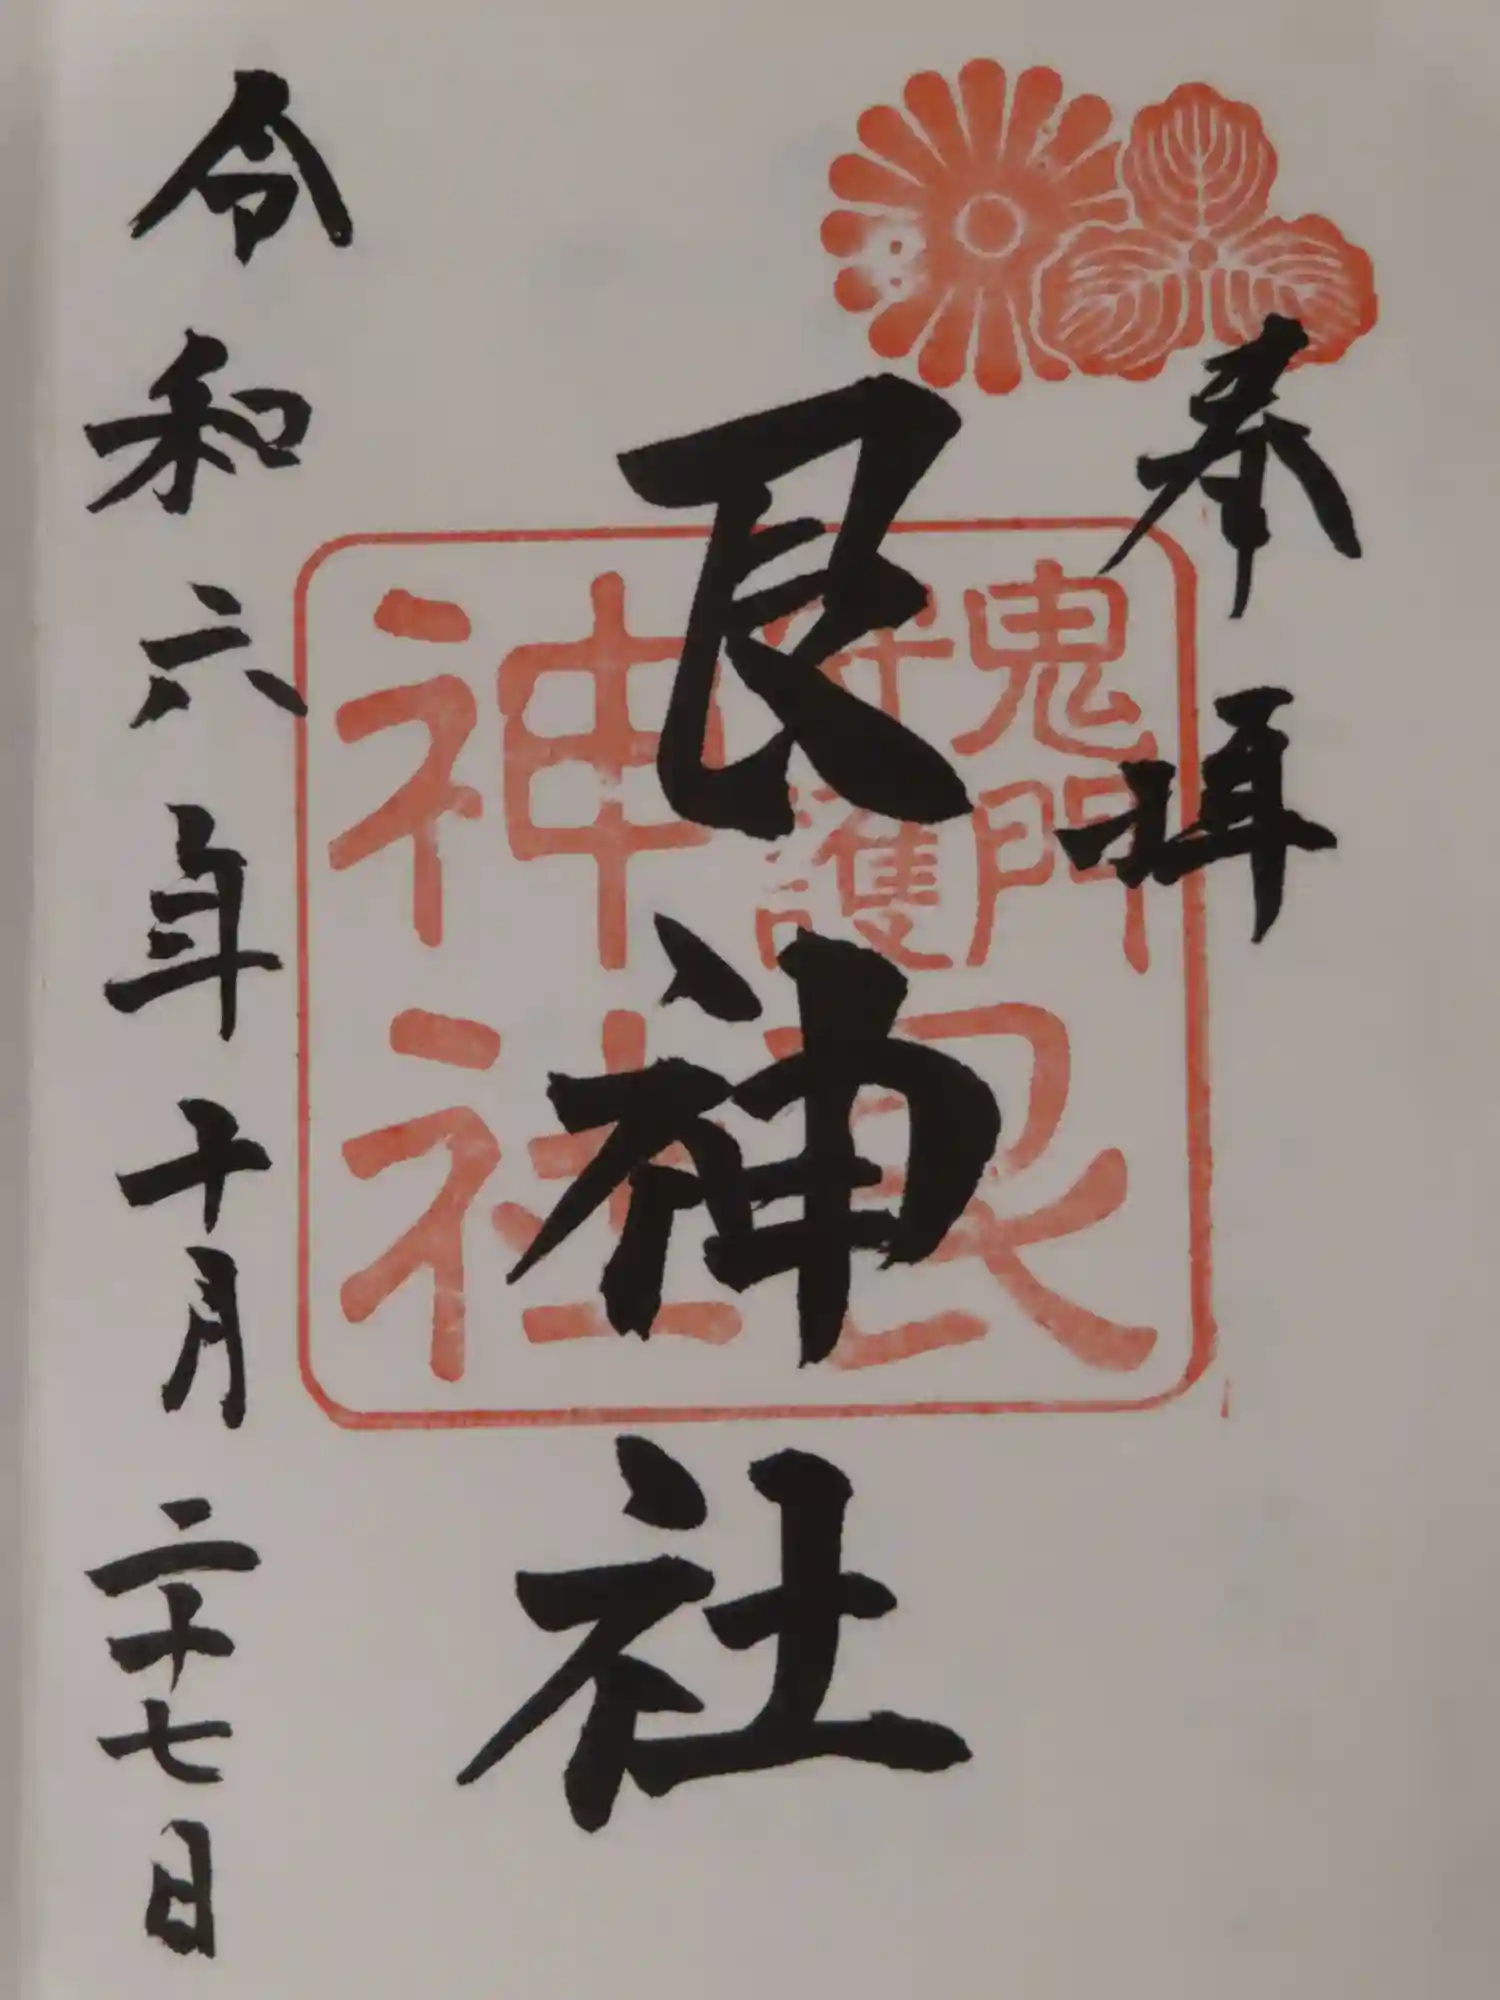 奉拝
鬼門
守護
艮
神社
艮神社
令和六年十月二十七日